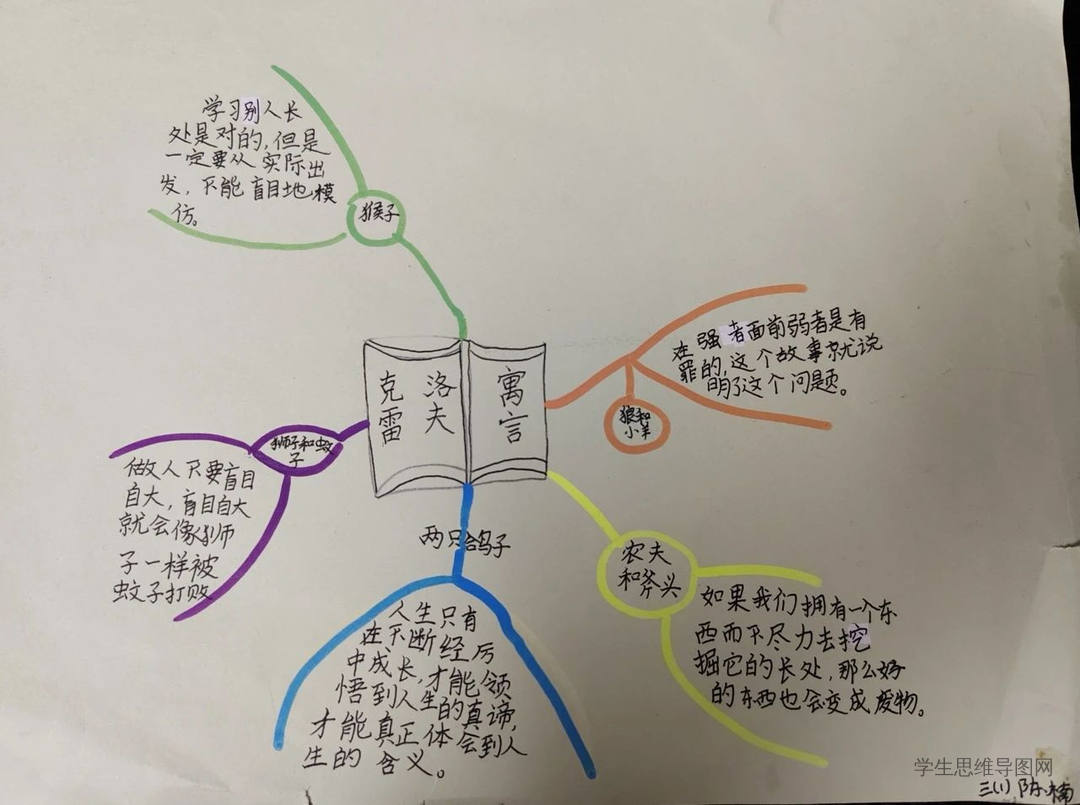 学习别人长
处是对的，但是
一定要从实际出
发，不能盲目地模
仿。
猴子
克雷
洛夫
寓言
在强者面前弱者是有
罪的，这个故事就说
明了这个问题。
狼和
小羊
狮子和蚊
子
做人不要盲目
自大，盲目自大
就会像狮
子一样被
蚊子打败
两只鸽子
人生只有
在不断经历
中成长，才能领
悟到人生的真谛，
才能真正体会到人
生的含义。
农夫
和斧头
如果我们拥有一个东
西而不尽力去挖
掘它的长处，那么好
的东西也会变成废物。
学生思维导图网
三(1)陈楠